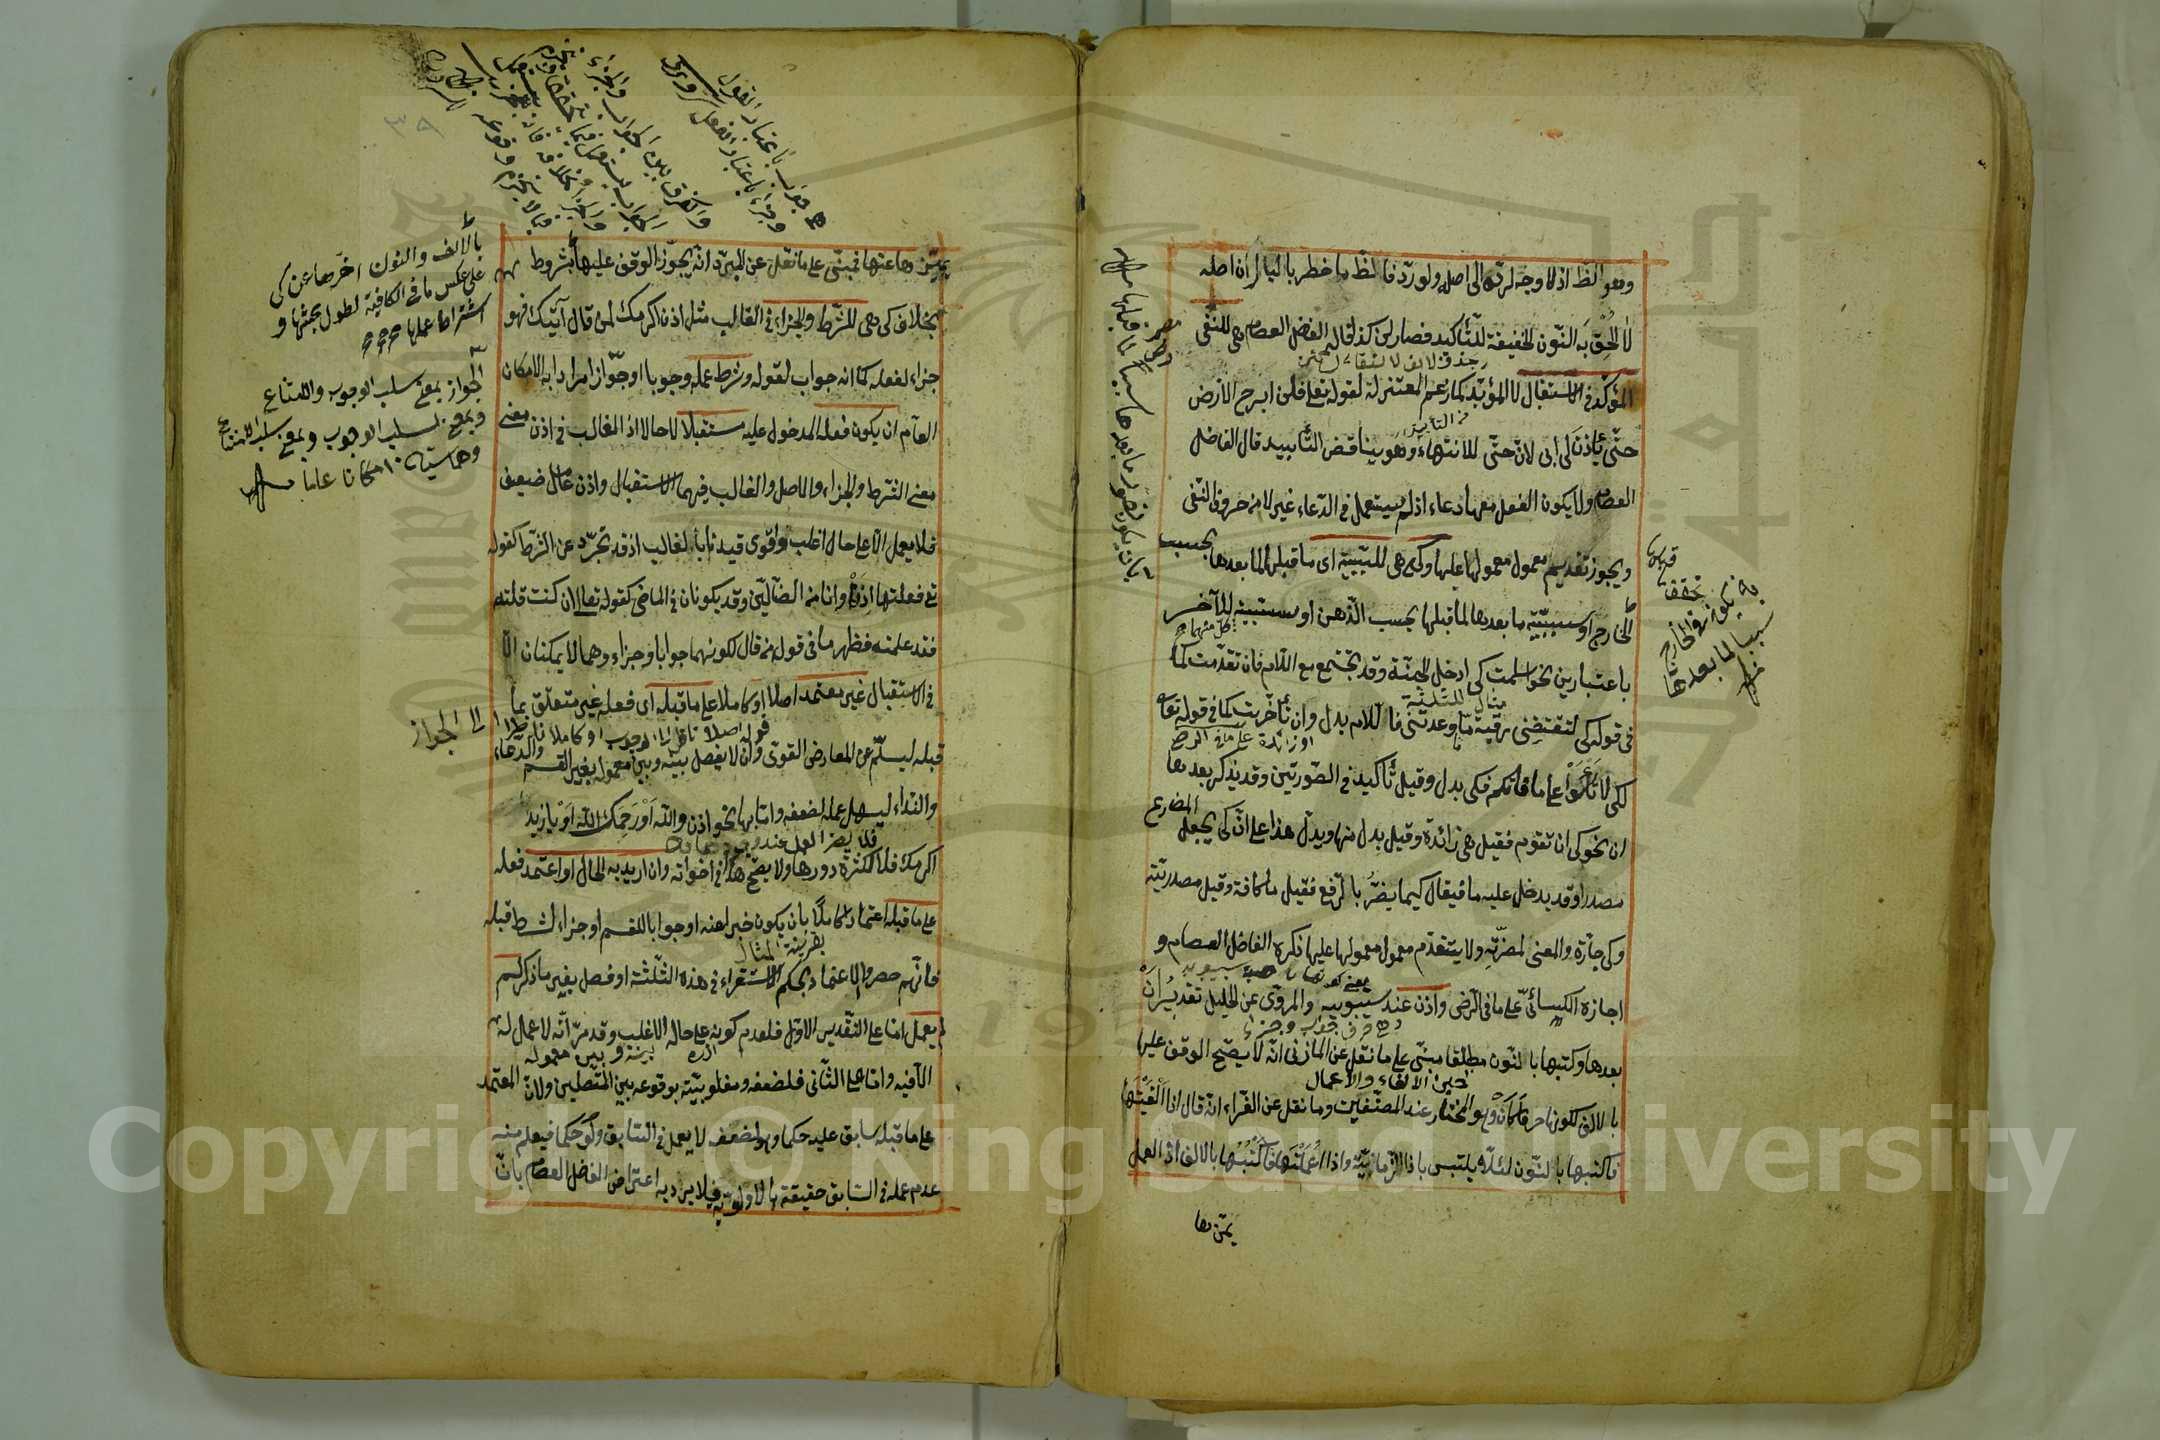 وهو الظ اذ لا وجه لرده الى اصله ولو رد فالظ ما خطر بالبال ان اصله
لا الحق به النون الخفيفة للتأكيد فصار لن كذا قاله الفضل العصام هى للنفى
المؤكد فى الاستقبال لا المؤبد كما زعم المعتزلة لقوله تع فلن ابرح الارض
حتى يأذن لى ابى لان حتى للانتهاء وهو يناقض التأبيد قال الفاضل
العصام ولا يكون الفعل معها دعاء اذ لم يستعمل فى الدعاء غير لا من حروف النفى
ويجوز تقديم معمول معمولها عليها وكى هى للسببية اى ما قبلها لما بعدها بحسب
الخارج او سببية ما بعدها لما قبلها بحسب الذهن او سببية للآخر
كل منهما
باعتبارين نحو اسلمت كى ادخل الجنة وقد تجتمع مع اللام فان تقدمت كما
فى قوله كى لتقضنى رقية ما وعدتنى فاللام بدل وان تأخرت كما فى قوله تعا
لكى لا تأسوا على ما فاتكم فكى بدل وقيل تأكيد فى الصورتين وقد يذكر بعدها
ان نحو كى ان تقوم فقيل هى زائدة وقيل بدل منها ويدل هذا على ان كى يجعل المضارع
مصدرا وقد يدخل عليه ما فيقال كيما يضر بالرفع فقيل ما كافة وقيل مصدرية
وكى جارة والمعنى لمضرته ولا يتقدم معمول معمولها عليها ذكره الفاضل العصام و
اجازه الكسائى على ما فى الرضى واذن عند سيبويه والمروى عن الخليل تقدير ان
وهى حرف جواب وجزاء
بعدها وكتبها بالنون مطلقا مبنى على ما نقل عن المازنى انه لا يصح الوقف عليها
حين الالغاء والاعمال
بالالف لكونها حرفا كان وهو المختار عند المصنفين وما نقل عن الفراء انه قال اذا الغيتها
فاكتبها بالنون لئلا يلتبس باذا الزمانية واذا اعملتها فاكتبها بالالف اذ العمل
يميزها
يميزها عنها فمبنى على ما نقل عن المبرد انه يجوز الوقف عليها بشروط
بخلاف كى هى للشرط والجزاء فى الغالب مثل اذن اكرمك لمن قال آتيك فهو
جزاء لفعله كما انه جواب لقوله وشرط عمله وجوبا او جوازا مرادا به الامكان
العام ان يكون فعله المدخول عليه مستقبلا لا حالا اذ الغالب فى اذن معنى
معنى الشرط والجزاء والاصل والغالب فيهما الاستقبال واذن عامل ضعيف
فلا يعمل الا على حال اغلب واقوى قيدنا بالغالب اذ قد تجرد عن الشرط كقوله
تع فعلتها اذا وانا من الضالين وقد يكونان فى الماضى كقوله تعا ان كنت قلته
فقد علمته فظهر ما فى قول من قال لكونهما جوابا وجزاء وهما لا يمكنان الا
فى الاستقبال غير معتمد اصلا او كاملا على ما قبله اى فعله غير متعلق بما
قوله اصلا ناظر الى الوجوب او كاملا ناظر الى الجواز
قبله ليسلم عن المعارض القوى وان لا يفصل بينه وبين معموله بغير القسم والدعاء
والنداء ليسهل عمله لضعفه واما بها نحو اذن والله او رحمك الله او يا زيد
اكرمك فلا لكثرة دورها ولا يصح هذا فى اخواته وان اريد به الحال او اعتمد فعله
على ما قبله اعتمادا كاملا بان يكون خبرا عنه او جوابا للقسم او جزاء لشرط قبله
بقرينة المثال
فانهم حصروا الاعتماد بحكم الاستقراء فى هذه الثلثة او فصل بغير ما ذكر لم
يعمل اما على التقدير الاول فلعدم كونه على حاله الاغلب وقد مر انه لا عمل له
بينه وبين معموله
الا فيه واما على الثانى فلضعفه ومغلوبيته بوقوعه بين المتصلين ولان المعتمد
على ما قبله سابق عليه حكما وهو لضعفه لا يعمل فى السابق ولو حكما فيعلم منه
عدم عمله فى السابق حقيقة بالاولوية فلا يرد به اعتراض الفاضل العصام بان
بالالف والنون اخرها عن كى
على عكس ما فى الكافية لطول بحثها و
اشتراط عملها
الجواز بمعنى سلب الوجوب والامتناع
وبمعنى سلب الوجوب وبمعنى سلب الامتناع
وهما سيان امكانا عاما
جواب باعتبار القول
وجزاء باعتبار الفعل
Copyright © King Saud University